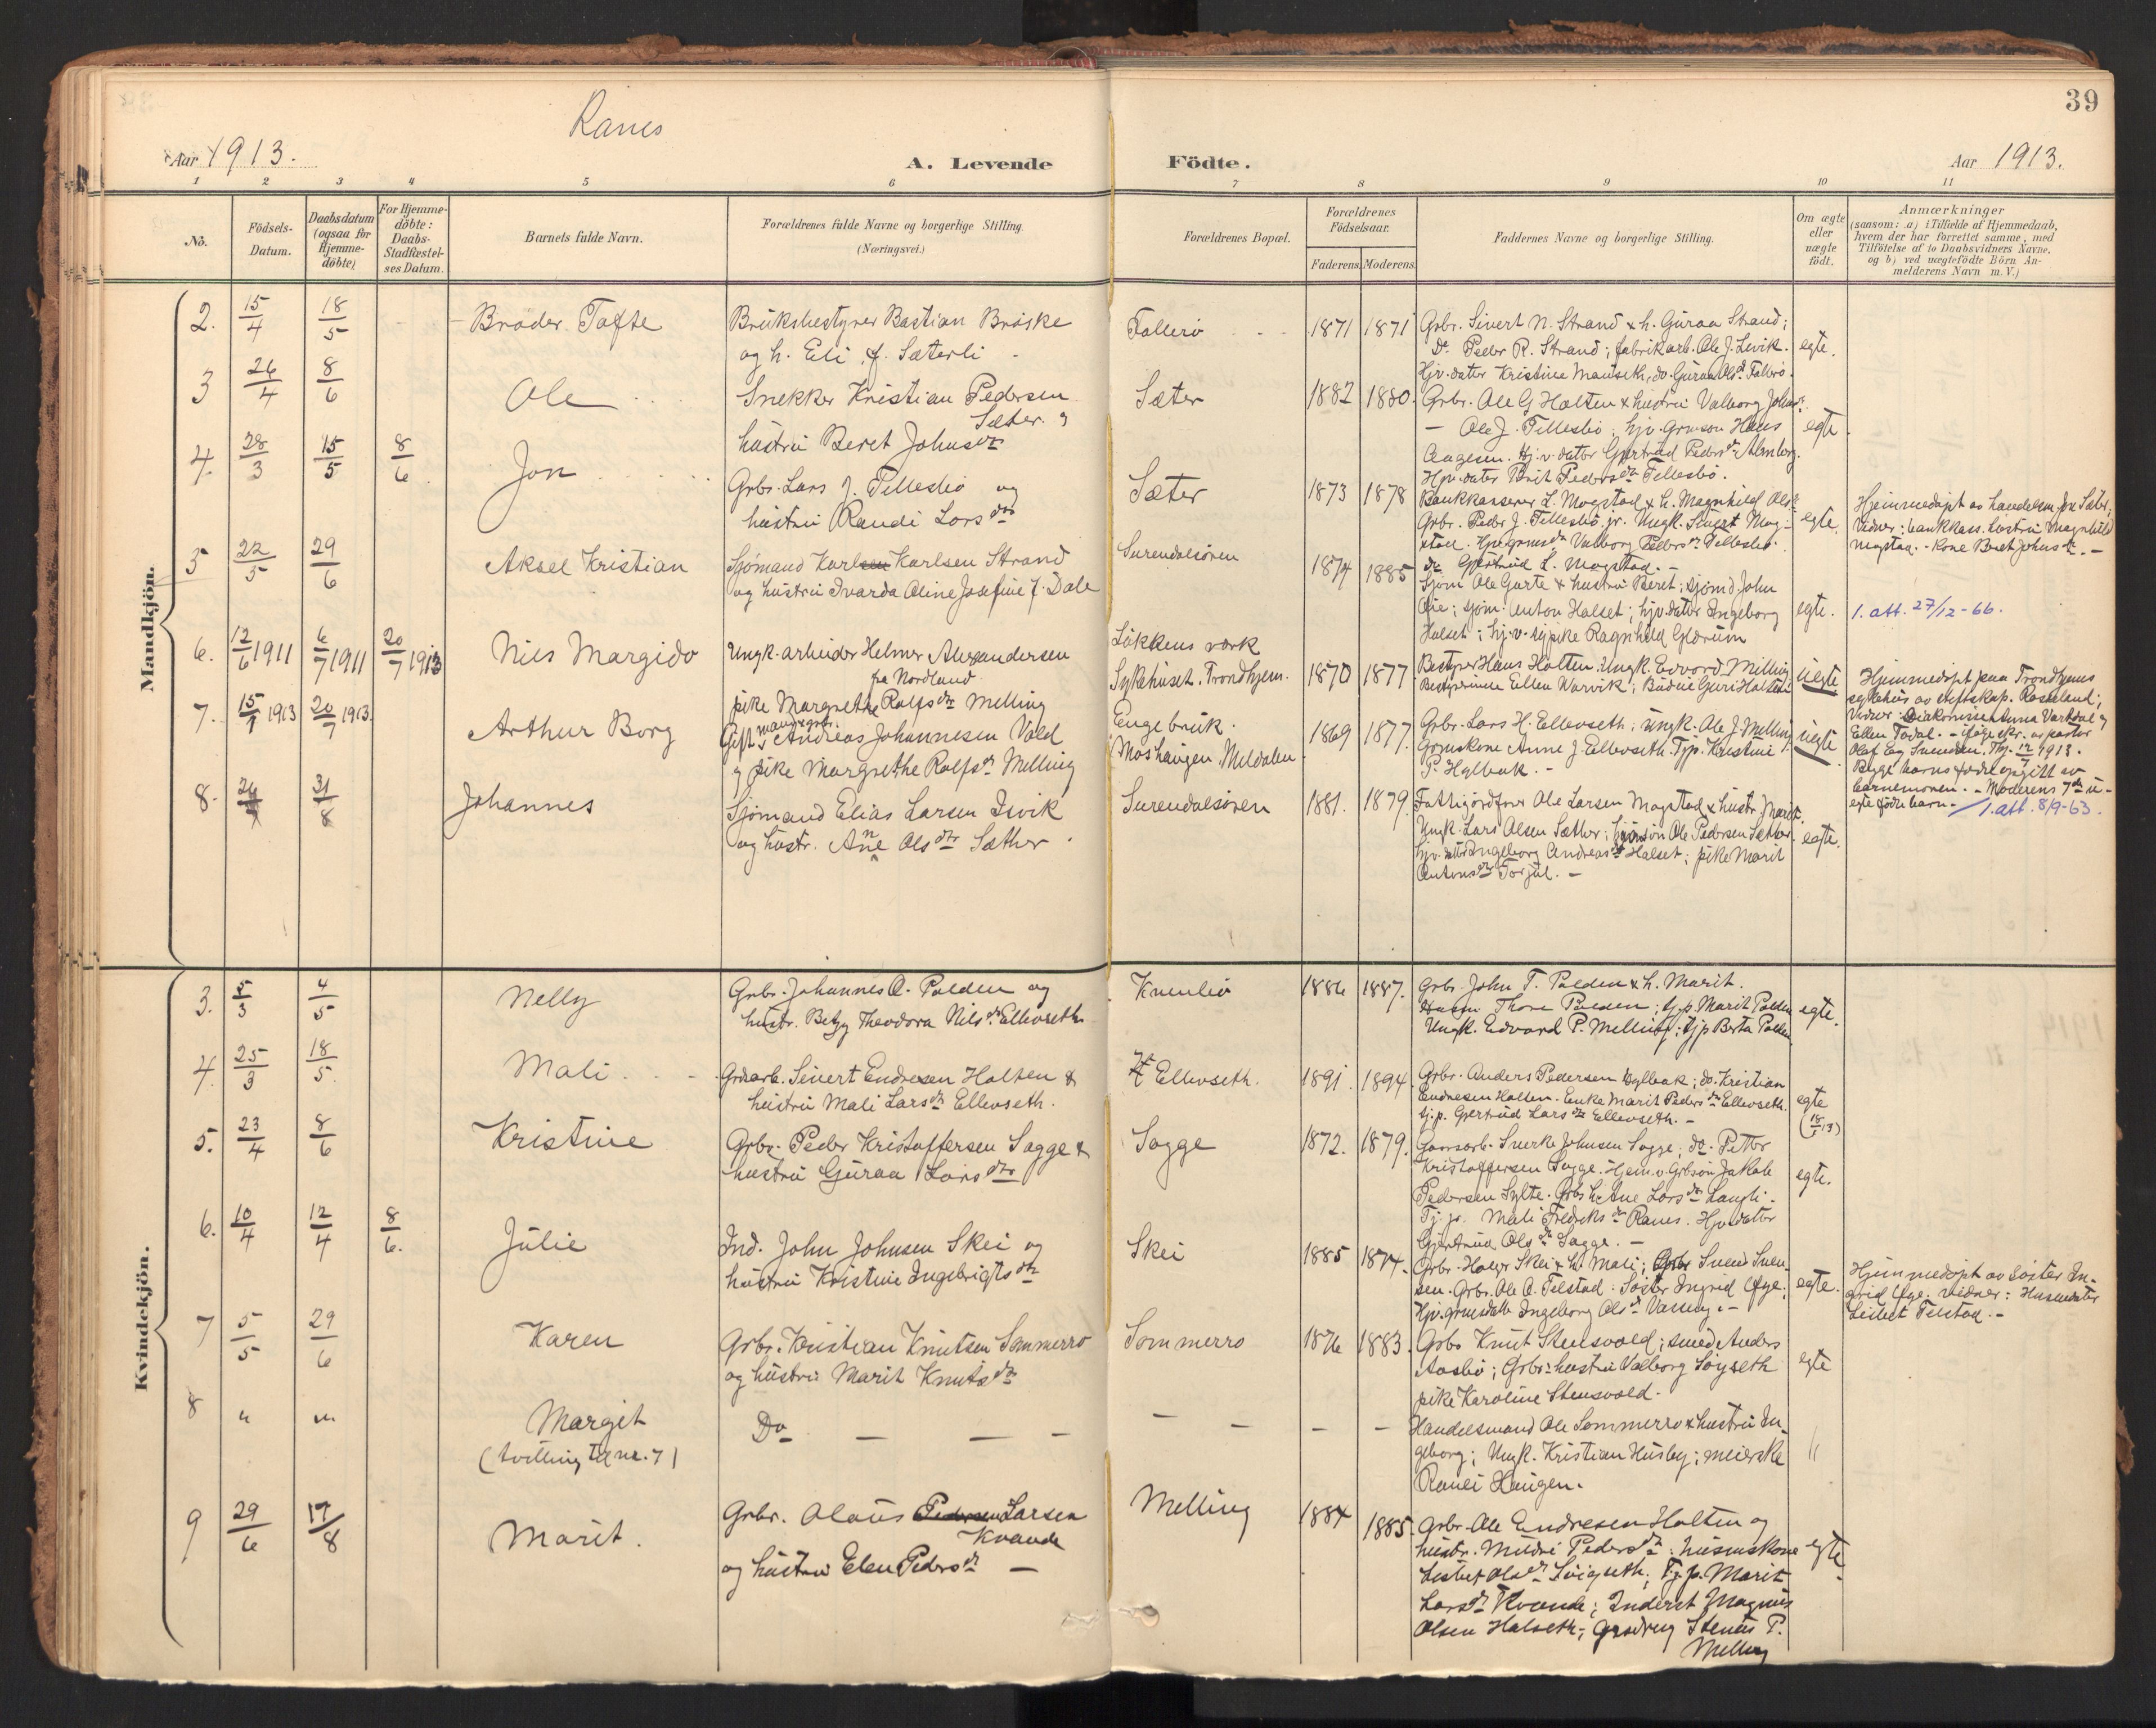 39
Ranes
Aar 1913.
A. Levende Födte.
Aar 1913.
1 2 3 4 5 6 7 8 9 10 11
No.
Födsels-
Datum.
Daabsdatum
(ogsaa for
Hjemme-
döbte)
For Hjemme-
döbte:
Daabs-
Stadfæstel-
ses Datum.
Barnets fulde Navn.
Forældrenes fulde Navne og borgerlige Stilling.
(Næringsvei.)
Forældrenes Bopæl.
Forældrenes
Födselsaar.
Faderens. Moderens.
Faddernes Navne og borgerlige Stilling.
Om ægte
eller
uægte
födt.
Anmærkninger
(saasom: a) i Tilfælde af Hjemmedaab,
hvem der har forrettet samme, med
Tilföielse af to Daabsvidners Navne.
og b) ved uægtefödte Börn An-
melderens Navn m. V.)
Mandkjön.
2. 15/4 18/5
Broder Tofte
Bruksbestyrer Bastian Brøske
og h. Eli f. Sæterli
Follerø
1871 1871
Grbr. Sivert N. Strand & h. Guraa Strand;
Do Peder R. Strand; fabrikarb. Ole J. Levik.
Hjv. datter Kristine Mauseth, do. Guraa Olsdtr Follerø.
egte.
3 26/4 8/6
Ole
Snekker Kristian Pedersen
Sæter og
hustru Beret Johnsdtr
Sæter
1882 1880.
Grbr. Ole G Holten & hustru Valborg Johnsdtr.
- Ole J. Tellesbø; hjv. grmson Hans
Aagesen. Hj. v. datter Gjertrud Pedersdtr Almberg.
Hjv. dater Brit Pedersdtr Tellesbø.
egte.
4. 28/3 15/5 8/6
Jon
Grbr. Lars J. Tellesbø og
hustru Randi Larsdtr
Sæter
1873 1878
Bankkasserer L. Mogstad & h. Magnhild Olsdtr
Grbr. Peder J. Tellesbø jr. Ungk. Sivert Mog-
stad. Hjv. grmsdtr Valborg Pedersdtr Tellesbø.
do Gjertrud L. Mogstad. -
egte
Hjemmedøpt av handelsm. Jon Sæter;
Vidner: bankkass. hustru Magnhild
Mogstad. - Kone Beret Johnsdtr. -
5 22/5 29/6
Aksel Kristian
Sjømand Karl Karlsen Strand
og hustru Ivarda Oline Josefine f. Dale
Surendalsøren
1874 1885
Sjøm Ole Garte & hustru Beret; sjømd. John
Øie; sjøm. Anton Halset; hjv. datter Ingeborg
Halset; hj. v. sypike Ragnhild Glærum
egte.
1. att. 27/12-66.
6. 12/6 1911 6/7 1911 20/7 1913
Nils Margido
Ungk. arbeider Helmer Alexandersen
fra Nordland
pike Margrethe Rolfsdtr Melling
Løkkens værk
Sykehuset. Trondhjem.
1870 1877
Bestyrer Hans Holten. Ungk. Edvard Melling
Bestyrerinne Ellen Warvik; Budeie Guri Holten
uegte
Hjemmedøpt paa Trondhjems
sykehus av stiftskap. Roseland;
Vidner: Diakonisse Anna Vartdal og
Ellen Todal. - ifølge skr. av pastor
Olaf Eg Svendsen. Thj. 12/7 1913.
7. 15/1 1913 20/7 1913.
Arthur Borg
Gift mand grbr. Andreas Johannesen Vold
og pike Margrethe Rolfsdtr Melling
Engebruk.
Moshaugen, Meldalen
1869 1877.
Grbr. Lars H. Ellevseth; Ungk. Ole J. Melling
Grmskone Anne J. Ellevseth. Tjp. Kristine
P. Hylbak. -
uegte
Begge barns fædre opgitt av
barnemoren. - Moderens 7de u-
egte fødte barn. - 1. att. 8/9-63.
8. 31/8
Johannes
Sjømand Elias Larsen Isvik
og hustr. Anne Olsdtr Sæther
Surendalsøren
1881. 1879.
Fattigårdforv. Ole Larsen Mogstad & hustr. Marit.
Ungk. Lars Olsen Sæther; Ole Pedersen Sæther.
hjv. datter Ingeborg Andreasdtr Halset; pike Marit
Antonsdtr Torjul. -
egte.
Kvindekjön.
3. 5/3 4/5
Nelly
Grbr. Johannes O. Polden og
hustr. Betzy Theodora Nilsdtr. Ellevseth
Knenlia
1886 1887.
Grbr. John T. Polden & h. Marit.
Husm Thore Polden; tjp. Marit Polden
Ungk. Edvard P. Melling; tjp Berta Polden
egte.
4. 25/3 18/5
Mali
Grdsarb. Sivert Endresen Holten &
hustru Mali Larsdtr Ellevseth.
Ellevseth.
1891. 1894.
Grbr. Anders Pedersen Hylbak; do. Kristian
Endresen Holten. Enke Marit Pedersdtr Ellevseth.
tj. p. Gjertrud Larsdtr Ellevseth. -
egte
(18/5 13)
5. 23/4 8/6
Kristine
Grbr. Peder Kristoffersen Sogge &
hustru Guraa Larsdtr
Sogge
1872. 1879.
Sverke Johnsen Sogge; do Petter
Kristoffersen Sogge. Hjem. v. Grbsøn Jakob
Pedersen Sylte. Grbs h. Ane Larsdtr Langli.
Tj. p. Mali Fredriksdtr Ranes. Hjv. dater
Gjertrud Olsdtr Sogge. -
egte.
6. 10/4 12/4 8/6.
Julie
Ind. John Johnsen Skei og
hustru Kristine Ingebrigtsdtr
Skei
1885 1874.
Grbr. Holger Skei & h. Mali; Grbr Svend Sven-
sen. Grbr. Ole O. Telstad. Søster Ingrid Øye;
Hjv. grmsdatt. Ingeborg Olsdtr -
egte.
Hjemmedøpt av søster In-
grid Øye. vidner: Husmdatter
Lisbet Telstad. -
7 5/5 29/6
Karen
Grbr. Kristian Knutsen Sommerro
og hustru Marit Knutsdtr
Sommerro
1876 1883.
Grbr Knut Stensvold; smed Anders
Aasbø; Grbr. hustru Valborg Søyseth
pike Karoline Stensvold.
egte
8 " "
Margit
(tvilling til nr. 7)
Do - - -
- - - -
Handelsmand Ole Sommerro & hustru In-
geborg; Ungk. Kristian Husby; meierske
Randi Haugen.
"
9 29/6 17/8
Marit.
Grbr. Olaus Pedersen Larsen
Kvande
og hustru Elen Pedersdtr -
Melling
1884 1885.
Grbr. Ole Endresen Holten og
hustr. Mildri Pedersdtr. husmskone
Lisbet Olsdtr Svigseth; Tj. p. Marit
Larsdtr Kvande; Inderst Magnus
Olsen Halseth; Stener P.
Melling
egte